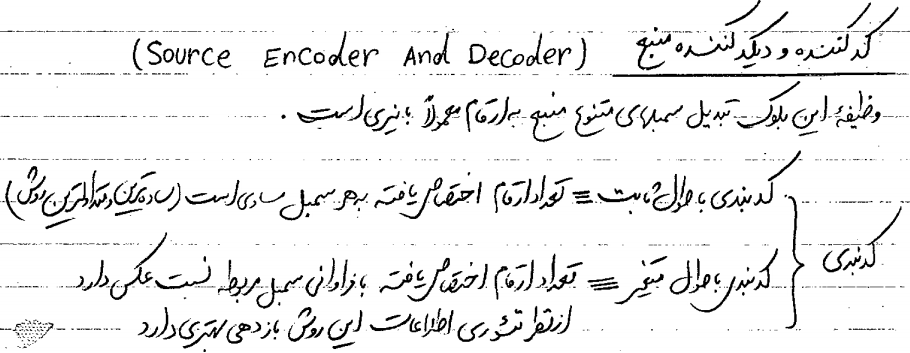 کدکننده و دیکدکننده منبع (Source Encoder And Decoder)
وظیفهٔ این بلوک تبدیل سمبلهای متنوع منبع به ارقام معمولاً باینری است .
کدبندی با طول ثابت ≡ تعداد ارقام اختصاص یافته به هر سمبل مساوی است (ساده‌ترین و متداولترین روش)
کدبندی
کدبندی با طول متغیر ≡ تعداد ارقام اختصاص یافته با فراوانی سمبل مربوطه نسبت عکس دارد
ازنظر تئوری اطلاعات این روش بازدهی بهتری دارد